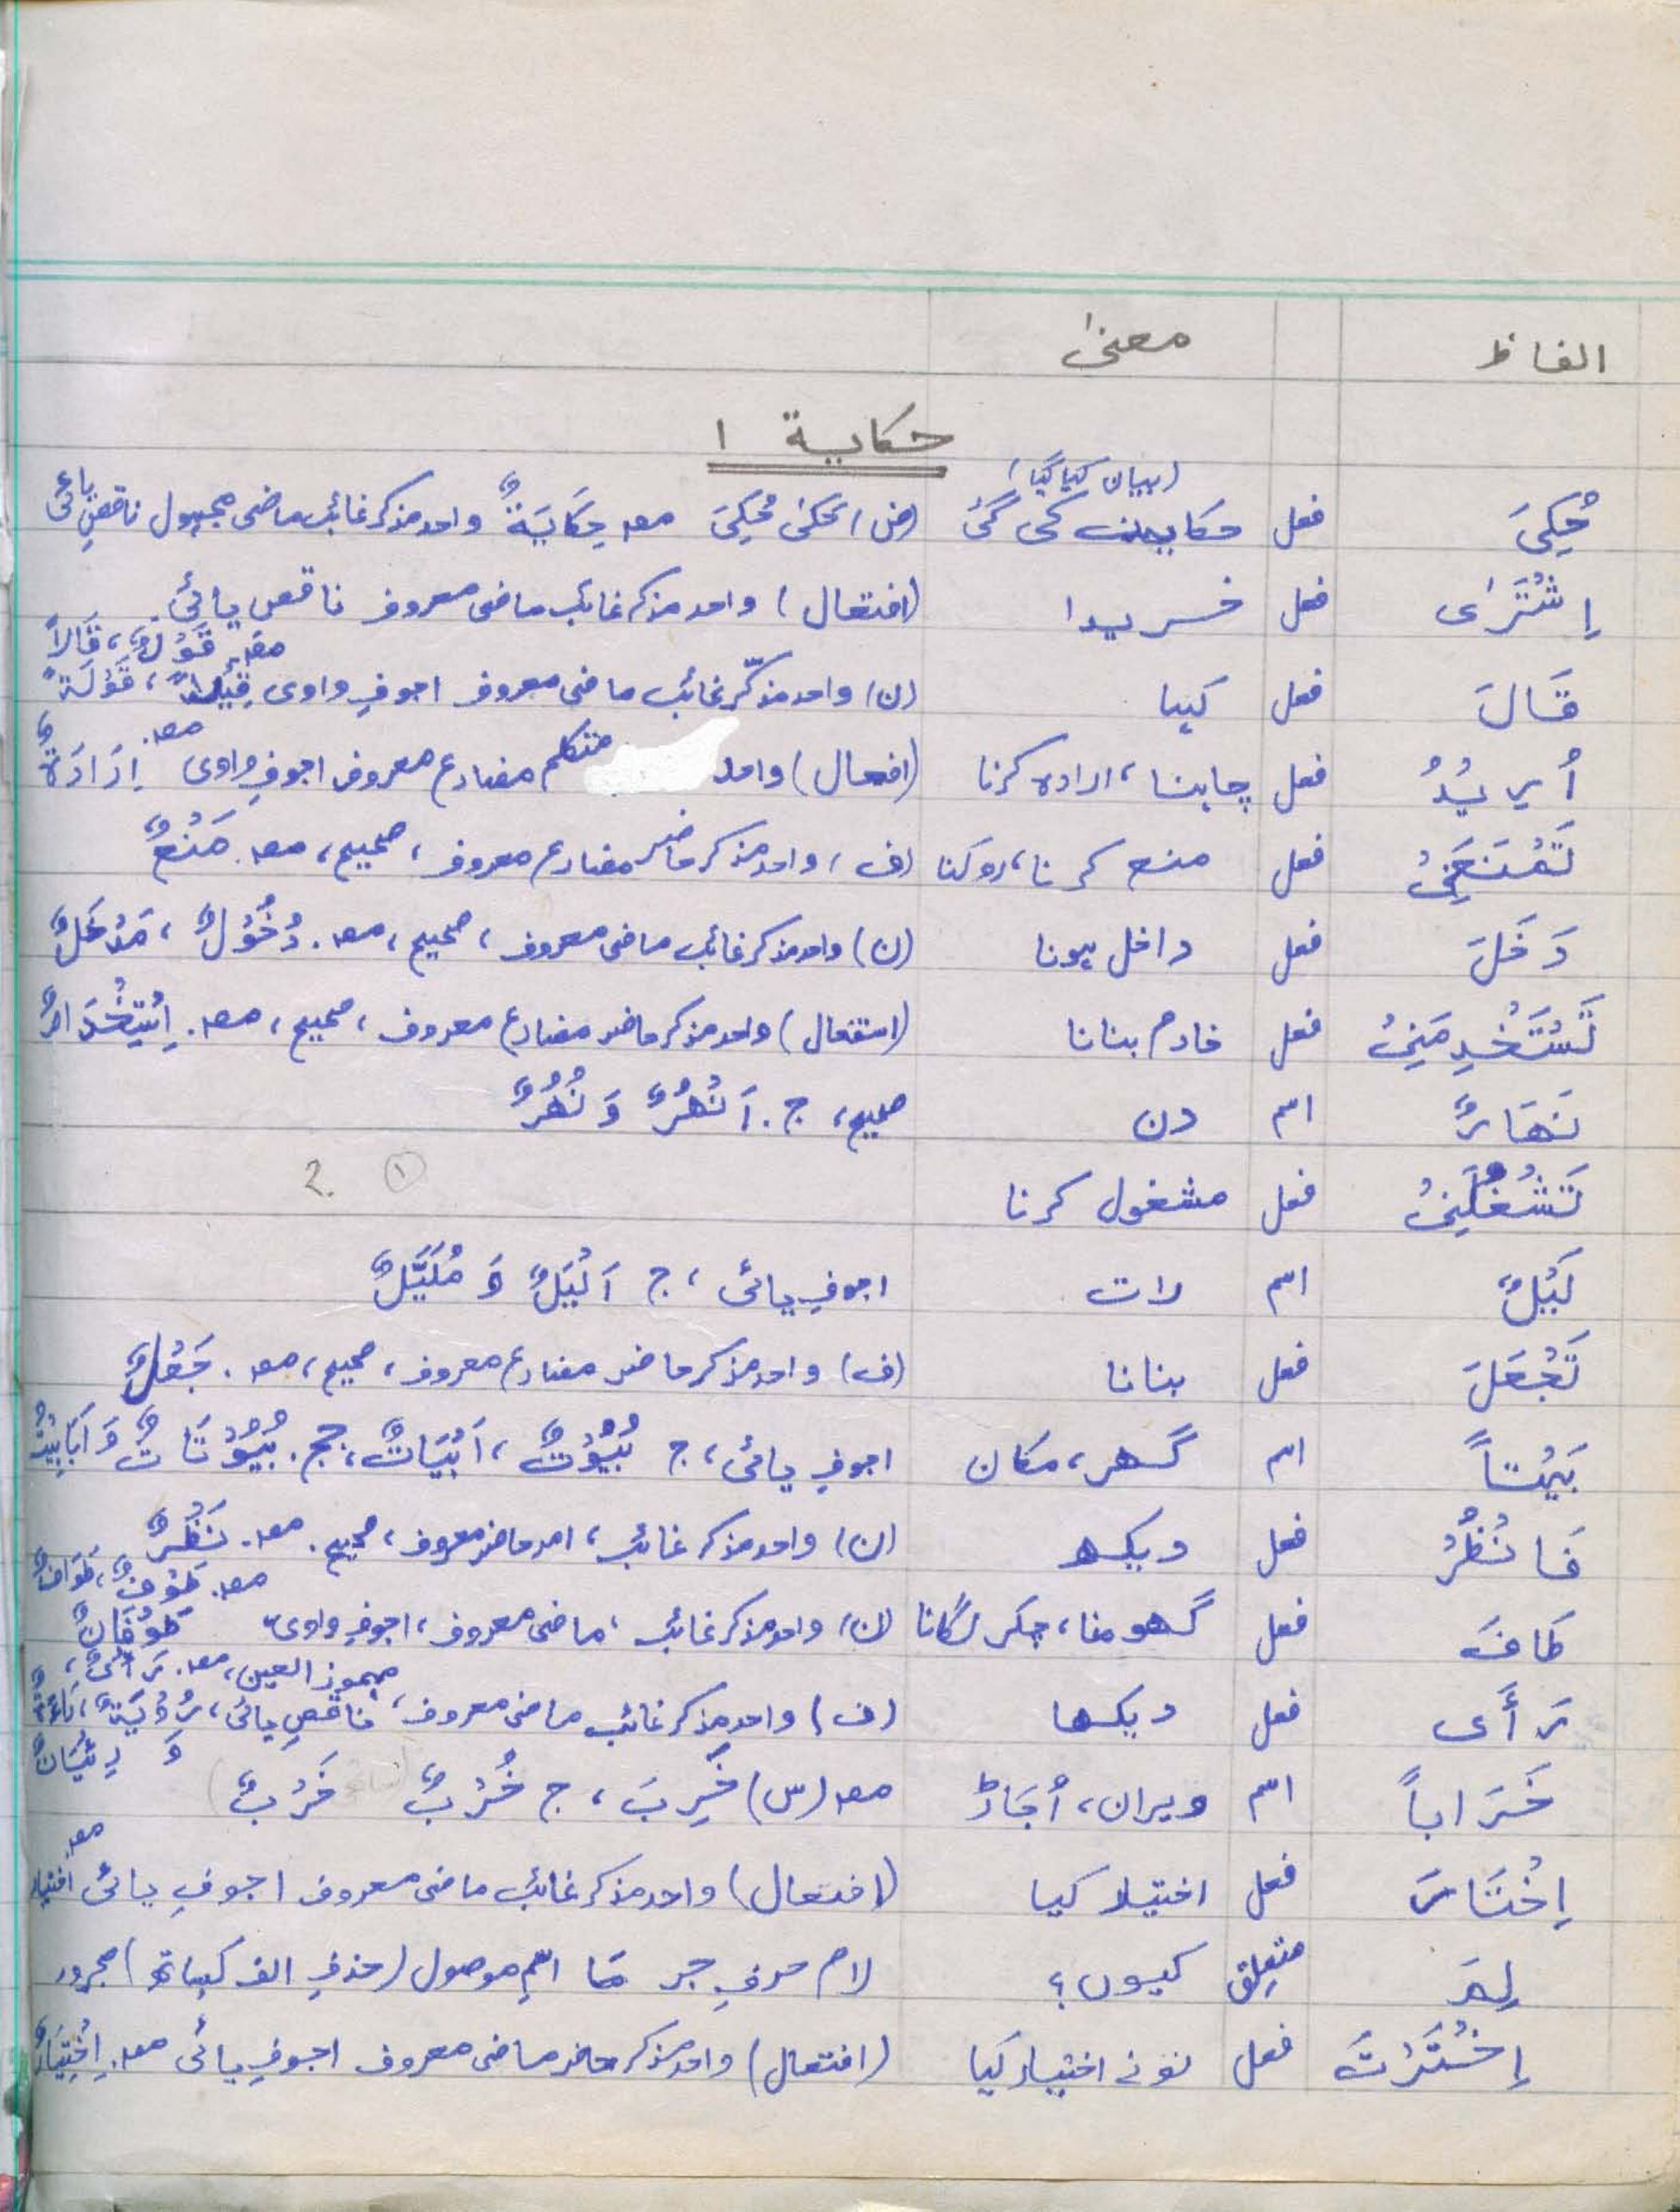 الفاظ معنیٰ
حکایة ۱
(بیان کیا گیا)
حُکِیَ فعل حکایت کی گئی (ض) حَکیٰ حُکِیَ مصـ حِکَایَةٌ واحد مذکر غائب ماضی مجہول ناقصِ یائی
اِشْتَرٰی فعل خریدا (افتعال) واحد مذکر غائب ماضی معروف ناقص یائی
قَالَ فعل کہا (ن) واحد مذکّر غائب ماضی معروف اجوفِ واوی مصـ قَوْلٌ، قَالاً، قِیْلاً، قَوْلَةً
اُرِیْدُ فعل چاہنا، ارادہ کرنا (افعال) واحد متکلم مضارع معروف اجوفِ واوی مصـ. اِرَادَةٌ
تَمْنَعَنِیْ فعل منع کرنا، روکنا (ف) واحد مذکر حاضر مضارع معروف، صحیح، مصـ. مَنْعٌ
دَخَلَ فعل داخل ہونا (ن) واحد مذکر غائب ماضی معروف، صحیح، مصـ. دُخُوْلٌ، مَدْخَلٌ
تَسْتَخْدِمَنِیْ فعل خادم بنانا (استفعال) واحد مذکر حاضر مضارع معروف، صحیح، مصـ. اِسْتِخْدَامٌ
نَهَارٌ اسم دن صحیح، ج. اَنْهُرٌ وَ نُهُرٌ
تَشْغُلَنِیْ فعل مشغول کرنا ① ?
لَیْلٌ اسم رات اجوفِ یائی، ج اَلْیَلٌ وَ مُلَیَّلٌ
تَجْعَلَ فعل بنانا (ف) واحد مذکر حاضر مضارع معروف، صحیح، مصـ. جَعْلٌ
بَیْتاً اسم گھر، مکان اجوفِ یائی، ج بُیُوْتٌ، اَبْیَاتٌ، جج. بُیُوْتَاتٌ وَ اَبَابِیْتُ
فَانْظُرْ فعل دیکھ (ن) واحد مذکر غائب، امر حاضر معروف، صحیح. مصـ. نَظْرٌ
طَافَ فعل گھومنا، چکر لگانا (ن) واحد مذکر غائب، ماضی معروف، اجوفِ واوی، مصـ. طَوْفٌ، طَوَافٌ طَوْفَانٌ
رَأَی فعل دیکھا (ف) واحد مذکر غائب ماضی معروف، مہموز العین، ناقصِ یائی، مصـ. رَأْیٌ، رُؤْیَةٌ، رَاءَةٌ وَ رِئْیَانٌ
خَرَاباً اسم ویران، اُجَاڑ مصـ (س) خَرِبَ، ج خُرْبٌ خَرْبٌ
اِخْتَارَ فعل اختیار کیا (افتعال) واحد مذکر غائب ماضی معروف اجوفِ یائی مصـ. اختیار
لِمَ متعلق کیوں؟ لام حرفِ جر مَا اسمِ موصول (حذفِ الف کیساتھ) مجرور
اِخْتَرْتَ فعل تونے اختیار کیا (افتعال) واحد مذکر حاضر ماضی معروف اجوفِ یائی مصـ. اِخْتِیَارٌ